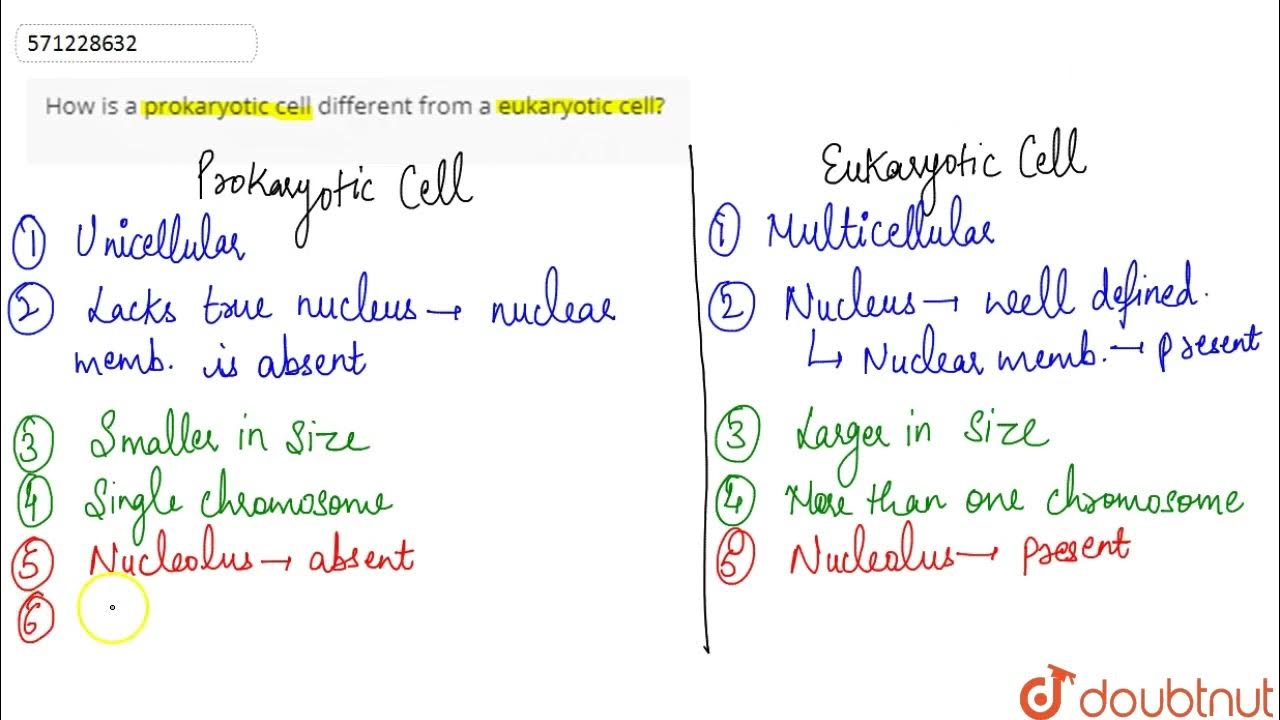 571228632
How is a prokaryotic cell different from a eukaryotic cell?
Prokaryotic Cell
① Unicellular
② Lacks true nucleus → nuclear
memb. is absent
③ Smaller in size
④ Single chromosome
⑤ Nucleolus → absent
⑥
Eukaryotic Cell
① Multicellular
② Nucleus → well defined.
↳ Nuclear memb. → present
③ Larger in size
④ More than one chromosome
⑤ Nucleolus → present
doubtnut